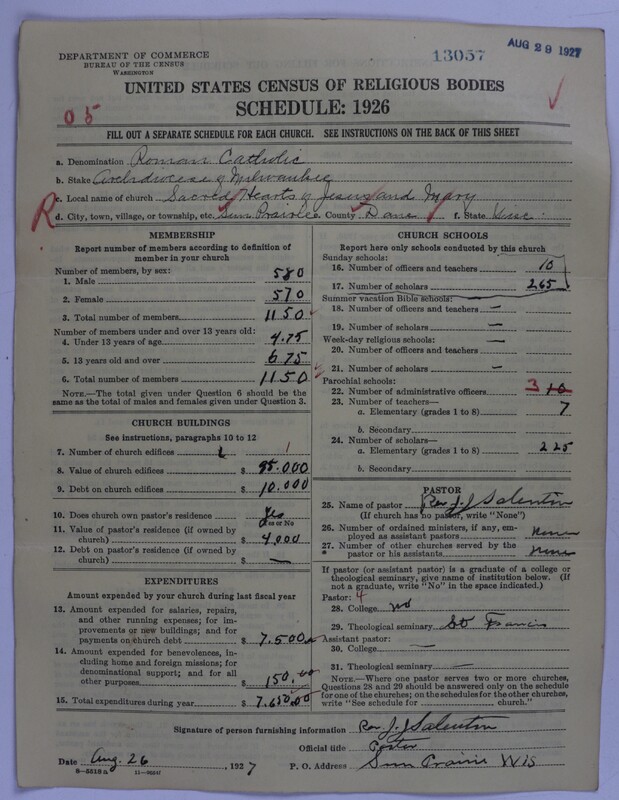 DEPARTMENT OF COMMERCE
BUREAU OF THE CENSUS
WASHINGTON
13057
AUG 29 1927
UNITED STATES CENSUS OF RELIGIOUS BODIES
SCHEDULE: 1926
05
FILL OUT A SEPARATE SCHEDULE FOR EACH CHURCH. SEE INSTRUCTIONS ON THE BACK OF THIS SHEET
a. Denomination Roman Catholic
b. Stake Archdiocese of Milwaukee
c. Local name of church Sacred Hearts of Jesus and Mary
R
d. City, town, village, or township, etc. Sun Prairie County Dane f. State Wisc.
MEMBERSHIP
Report number of members according to definition of
member in your church
Number of members, by sex:
1. Male 580
2. Female 570
3. Total number of members 1150
Number of members under and over 13 years old:
4. Under 13 years of age 475
5. 13 years old and over 675
6. Total number of members 1150
NOTE.—The total given under Question 6 should be the
same as the total of males and females given under Question 3.
CHURCH BUILDINGS
See instructions, paragraphs 10 to 12
7. Number of church edifices 1
8. Value of church edifices $ 95.000
9. Debt on church edifices $ 10.000
10. Does church own pastor's residence? Yes
Yes or No
11. Value of pastor's residence (if owned by
church) $ 4,000
12. Debt on pastor's residence (if owned by
church) $ —
EXPENDITURES
Amount expended by your church during last fiscal year
13. Amount expended for salaries, repairs,
and other running expenses; for im-
provements or new buildings; and for
payments on church debt $ 7.500
14. Amount expended for benevolences, in-
cluding home and foreign missions; for
denominational support; and for all
other purposes $ 150.00
15. Total expenditures during year $ 7.650.00
CHURCH SCHOOLS
Report here only schools conducted by this church
Sunday schools:
16. Number of officers and teachers 10
17. Number of scholars 265
Summer vacation Bible schools:
18. Number of officers and teachers —
19. Number of scholars —
Week-day religious schools: —
20. Number of officers and teachers
21. Number of scholars —
Parochial schools:
22. Number of administrative officers 3 10
23. Number of teachers—
a. Elementary (grades 1 to 8) 7
b. Secondary
24. Number of scholars—
a. Elementary (grades 1 to 8) 225
b. Secondary
PASTOR
25. Name of pastor Rev J. J. Salentin
(If church has no pastor, write "None")
26. Number of ordained ministers, if any, em-
ployed as assistant pastors None
27. Number of other churches served by the
* pastor or his assistants None
If pastor (or assistant pastor) is a graduate of a college or
theological seminary, give name of institution below. (If
not a graduate, write "No" in the space indicated.)
Pastor: 4
28. College no
29. Theological seminary St Francis
Assistant pastor:
30. College —
31. Theological seminary —
NOTE.—Where one pastor serves two or more churches,
Questions 28 and 29 should be answered only on the schedule
for one of the churches; on the schedules for the other churches,
write "See schedule for church."
Signature of person furnishing information Rev J. J. Salentin
Official title Pastor
Date Aug. 26, 1927 P. O. Address Sun Prairie Wis
8—5518a